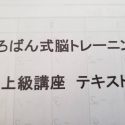 ろばん式脳トレーニン
上級講座 テキスト